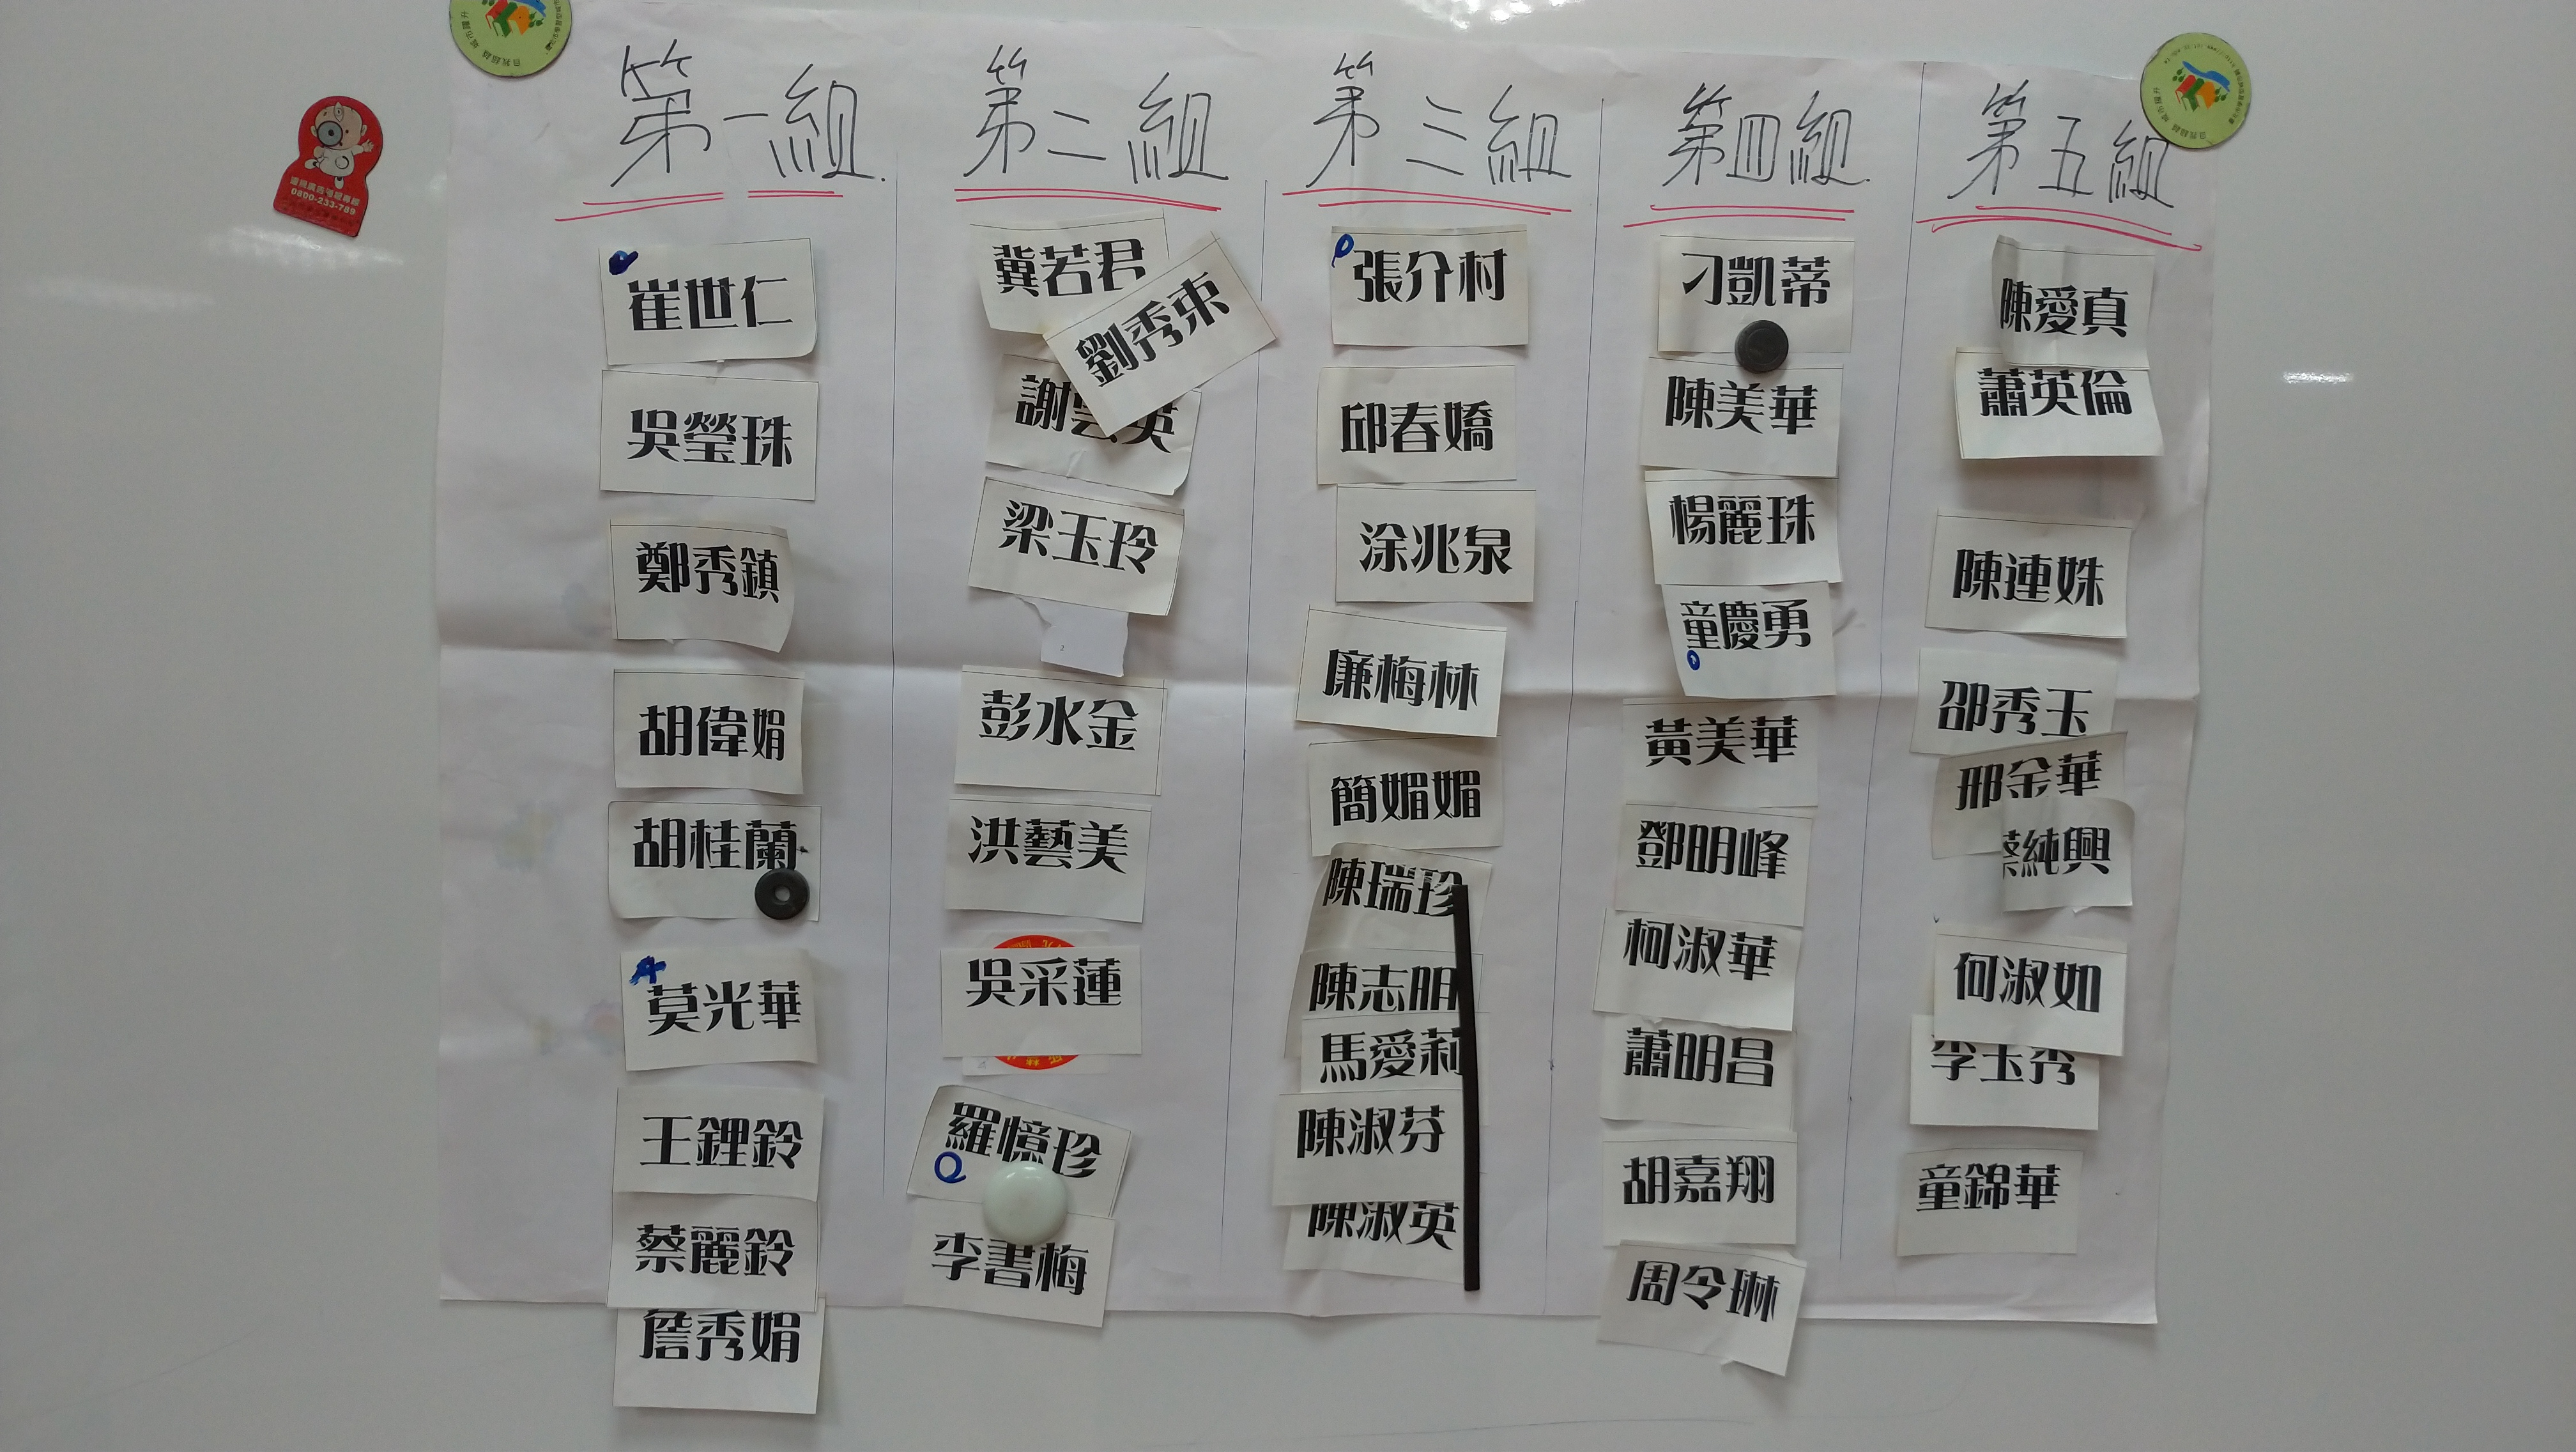 第一組
崔世仁
吳瑩珠
鄭秀鎮
胡偉娟
胡桂蘭
莫光華
王鋰鈴
蔡麗鈴
詹秀娟
第二組
冀若君
劉秀束
謝雲英
梁玉玲
2
彭水金
洪藝美
吳采蓮
羅憶珍
李書梅
第三組
張介村
邱春嬌
涂兆泉
廉梅林
簡媚媚
陳瑞珍
陳志明
馬愛莉
陳淑芬
陳淑英
第四組
刁凱蒂
陳美華
楊麗珠
童慶勇
黃美華
鄧明峰
柯淑華
蕭明昌
胡嘉翔
周令琳
第五組
陳愛真
蕭英倫
陳連姝
邵秀玉
邢金華
蔡純興
何淑如
李玉秀
童錦華
0800-233-789